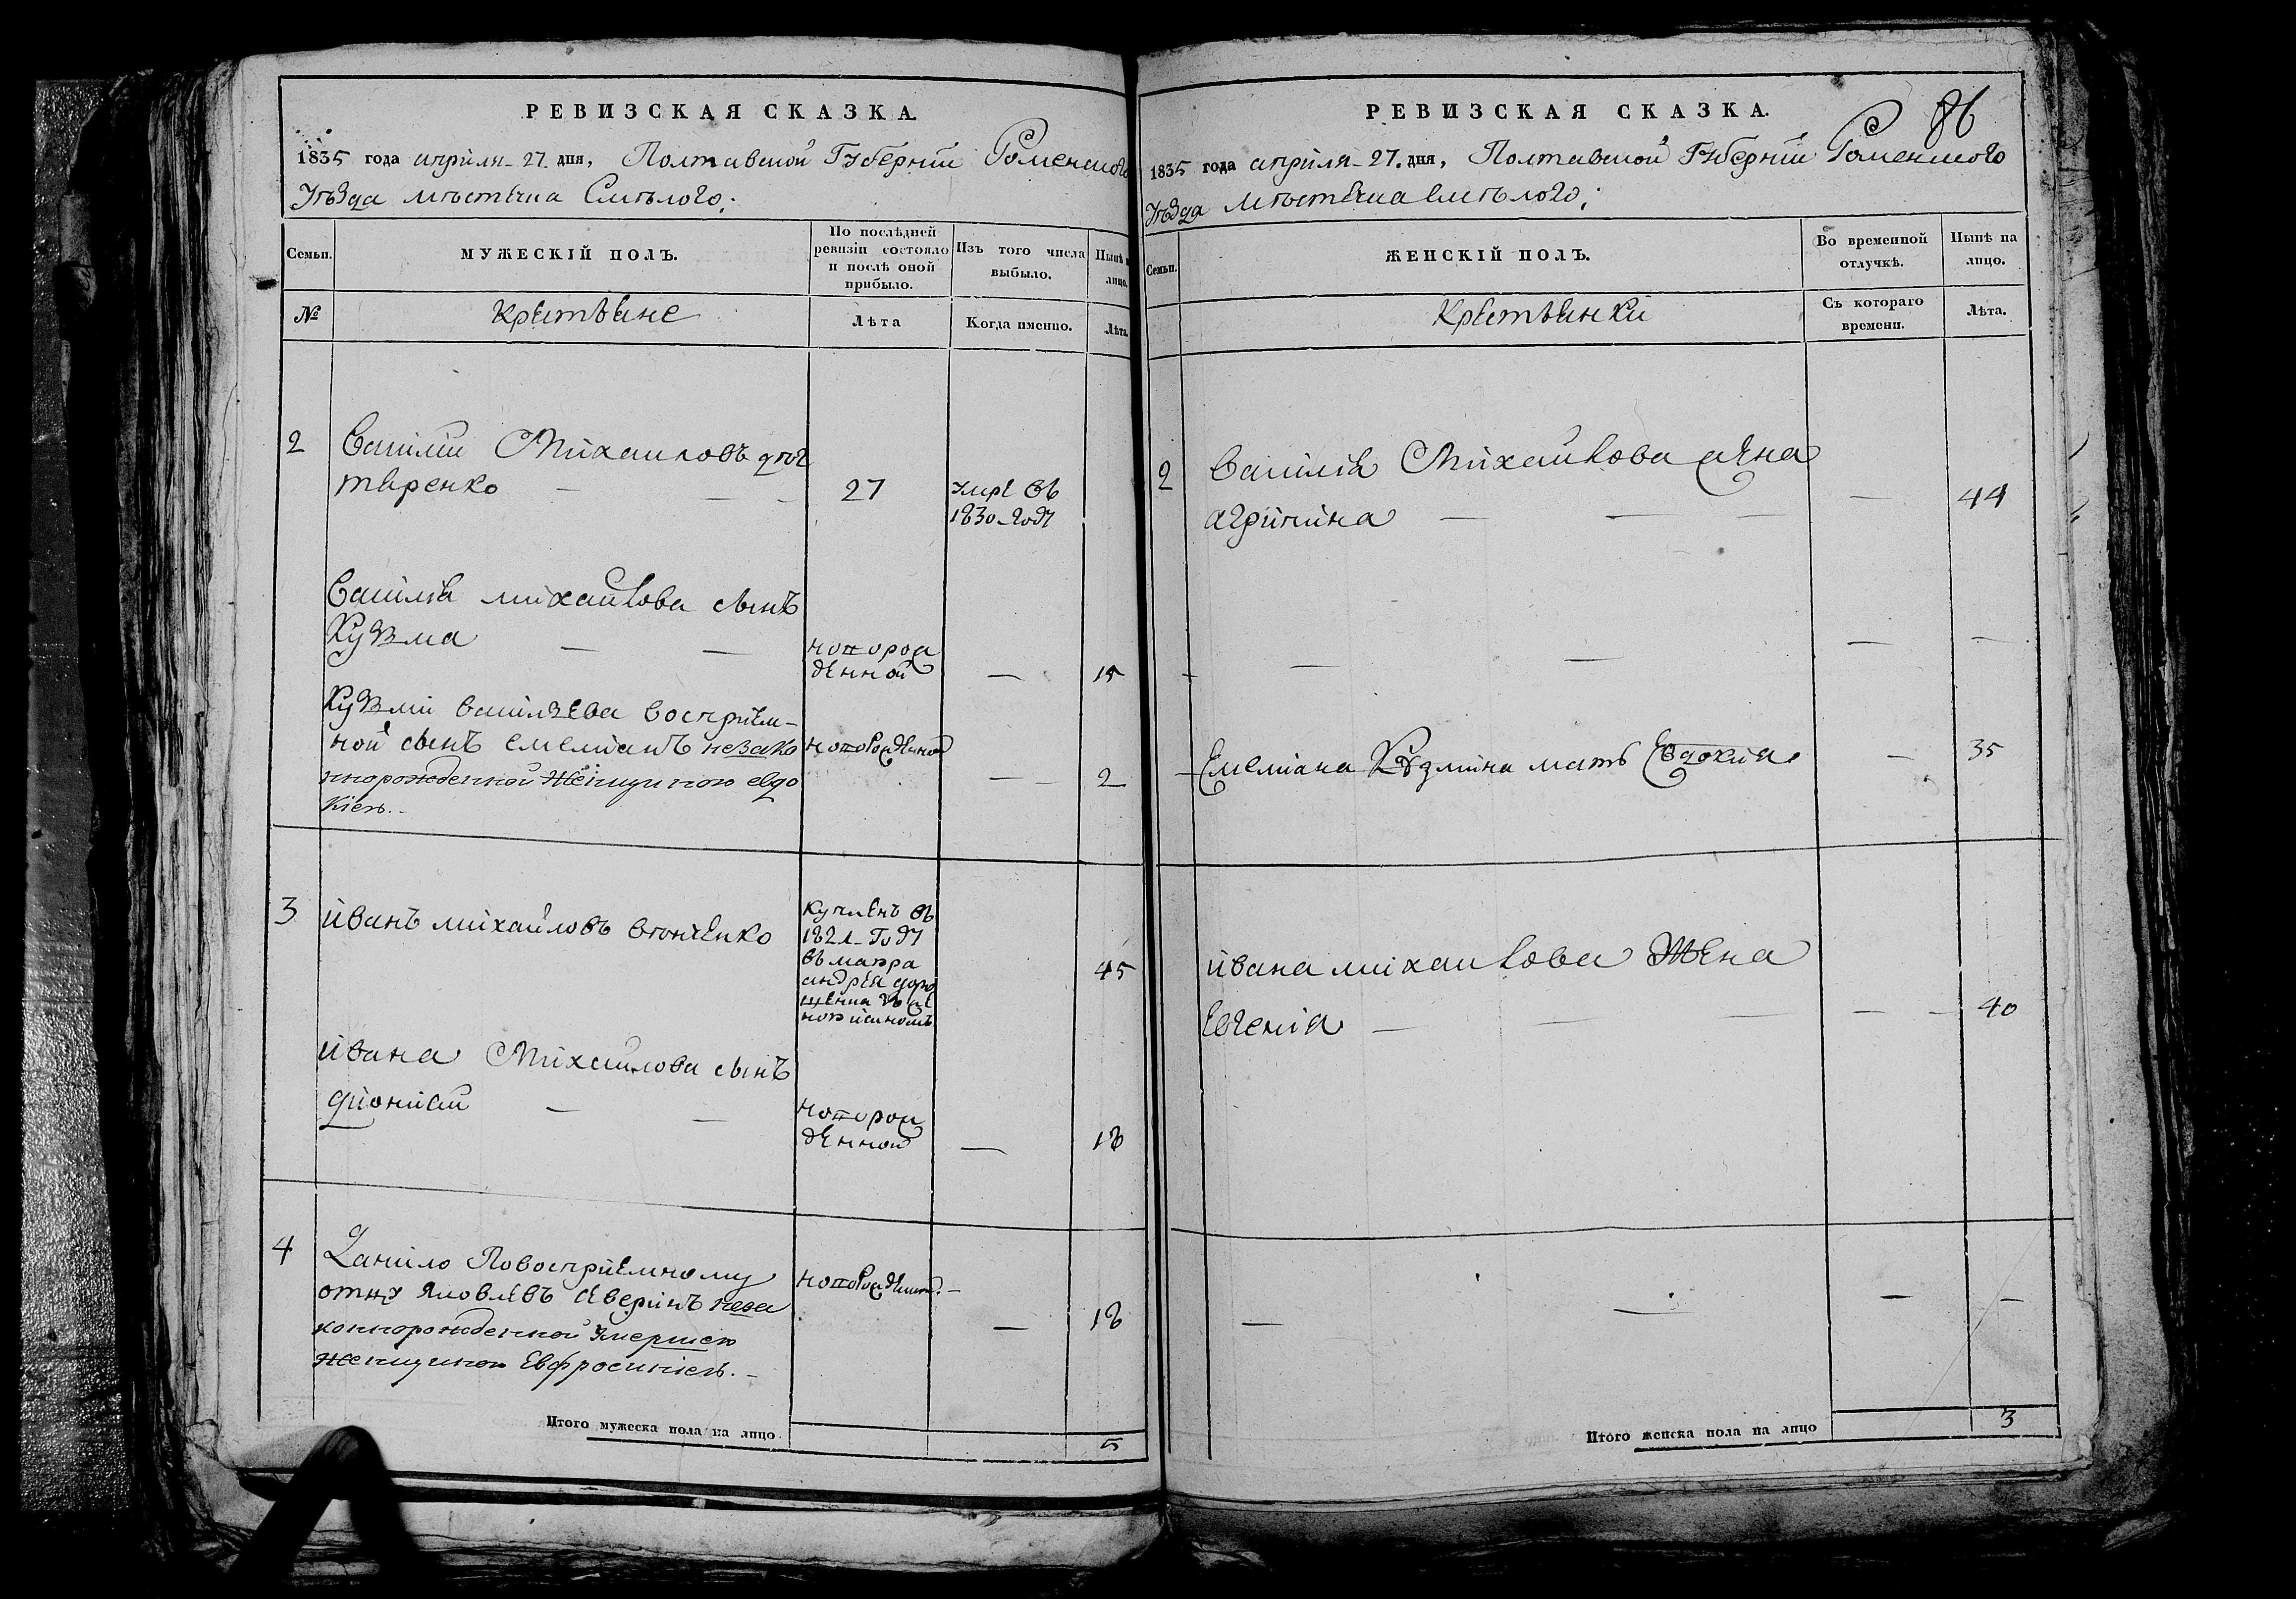 РЕВИЗСКАЯ СКАЗКА.
1835 года апрѣля 27. дня, Полтавской Губерніи Роменского
Уѣзда мѣстечка Смѣлого;
Семьи. МУЖЕСКІЙ ПОЛЪ. По послѣдней ревизіи состояло и послѣ оной прибыло. Изъ того числа выбыло. Нынѣ на лицо.
№ Крестьяне Лѣта Когда именно. Лѣта.
2 Василій Михайловъ
27 умре въ
1830 году
Василія михайлова сынъ
Кузма
новорож
денной — 15
Кузми василіева восприем-
ной сынъ емеліанъ незако
ннорожденной женщиною евдо
кіею.
новорожденной — 2
3 иванъ михайловъ
купленъ въ
1821 Году
45
ивана Михайлова сынъ
діонисій
новорож
денной — 18
4 Данило Повосприемному
отцу Яковлевъ Аверинъ неза
коннорожденной умершею
женщиною Евфросиніею.
новорожденной — 18
Итого мужеска пола на лицо 5
РЕВИЗСКАЯ СКАЗКА.
86
1835 года апрѣля 27. дня, Полтавской Губерніи Роменского
Уѣзда Мѣстечка Смѣлого;
Семьи. ЖЕНСКІЙ ПОЛЪ. Во временной отлучкѣ. Нынѣ на лицо.
Крестьянки Съ котораго времени. Лѣта.
2 Василія Михайлова жена
агрипина — 44
Емеліана Кузмина мать Евдокия — 35
ивана михайлова Жена
Евгенія — 40
Итого женска пола на лицо 3